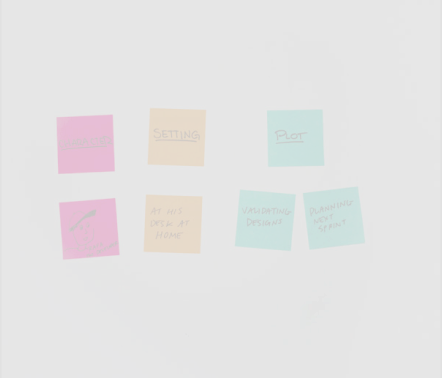 SETTING
PLOT
AT HIS
DESK AT
HOME
VALIDATING
DESIGNS
PLANNING
NEXT
SPRINT